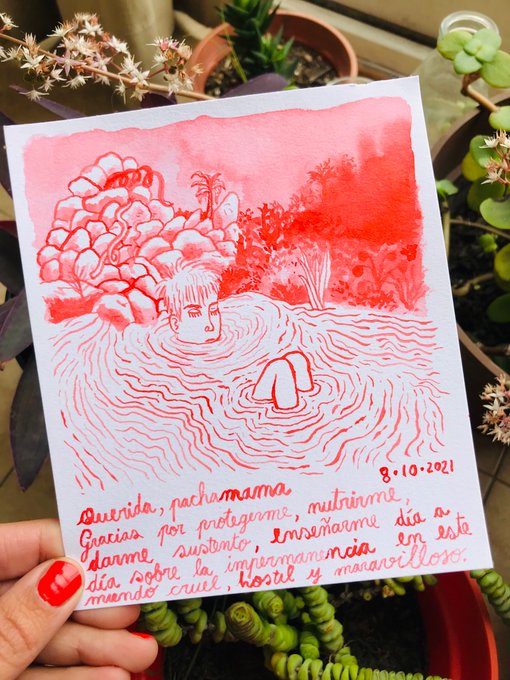 8·10·2021
Querida, pachamama
Gracias por protegerme, nutrirme,
darme sustento, enseñarme día a
día sobre la impermanencia en este
mundo cruel, hostil y maravilloso.